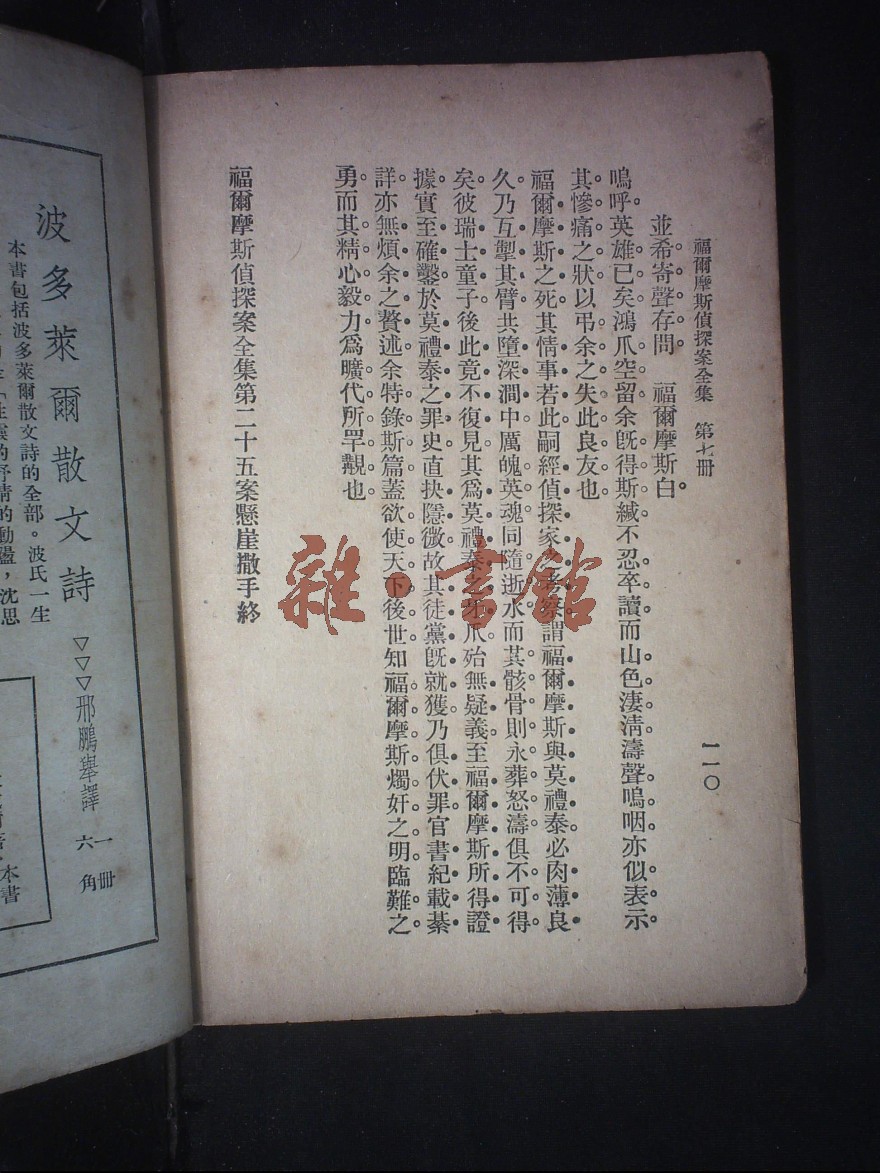 福爾摩斯偵探案全集 第七冊
一一〇
並希寄聲存問 福爾摩斯白
嗚呼英雄已矣鴻爪空留余既得斯緘不忍卒讀而山色淒清濤聲嗚咽亦似表示
其慘痛之狀以弔余之失此良友也
福爾摩斯之死其情事若此嗣經偵探家之考察謂福爾摩斯與莫禮泰必肉薄良
久乃互掣其臂共墮深澗中厲魄英魂同隨逝水而其骸骨則永葬怒濤俱不可得
矣彼瑞士童子後此竟不復見其爲莫禮泰之牙爪殆無疑義至福爾摩斯所得證
據實至確鑿於莫禮泰之罪史直抉隱微故其徒黨既就獲乃俱伏罪官書紀載綦
詳亦無煩余之贅述余特錄斯篇蓋欲使天下後世知福爾摩斯燭奸之明臨難之
勇而其精心毅力爲曠代所罕覯也
福爾摩斯偵探案全集第二十五案懸崖撒手終
雜·書館
波多萊爾散文詩
▽▽▽邢鵬舉譯
一冊
六角
本書包括波多萊爾散文詩的全部。波氏一生
的抒情的動盪，沈思
本書